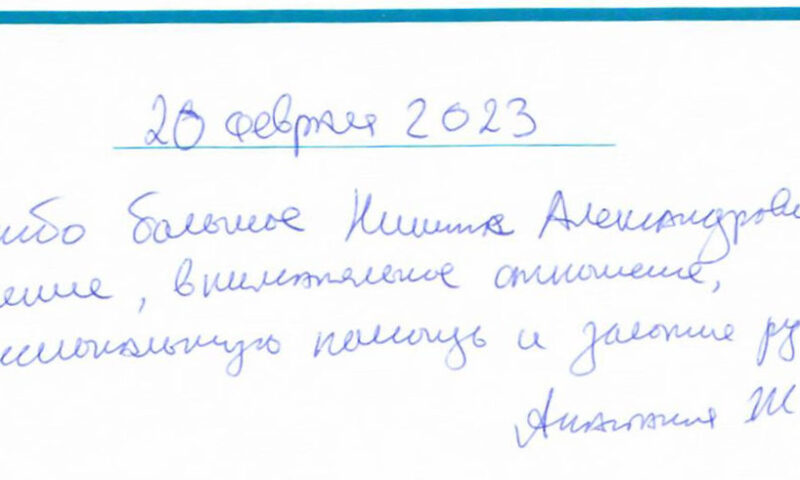 20 февраля 2023
ибо большое Никита Александрови
ение, внимательное отношение,
сиональную помощь и золотые ру
Анастасия Ж